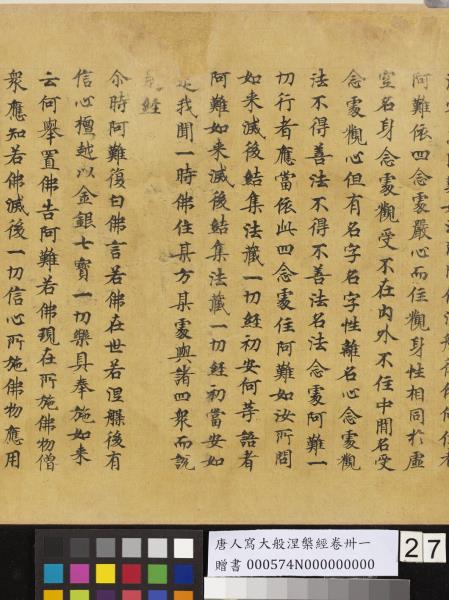 阿難依四念處嚴心而住觀身性相同於虛
空名身念處觀受不在內外不住中間名受
念處觀心但有名字名字性離名心念處觀
法不得善法不得不善法名法念處阿難一
切行者應當依此四念處住阿難如汝所問
如來滅後結集法藏一切經初安何等語者
阿難如來滅後結集法藏一切經初當安如
是我聞一時佛住某方某處與諸四衆而說
是經
尒時阿難復白佛言若佛在世若涅槃後有
信心檀越以金銀七寶一切樂具奉施如來
云何舉置佛告阿難若佛現在所施佛物僧
衆應知若佛滅後一切信心所施佛物應用
唐人寫大般涅槃經卷卅一
贈書 000574N000000000
27